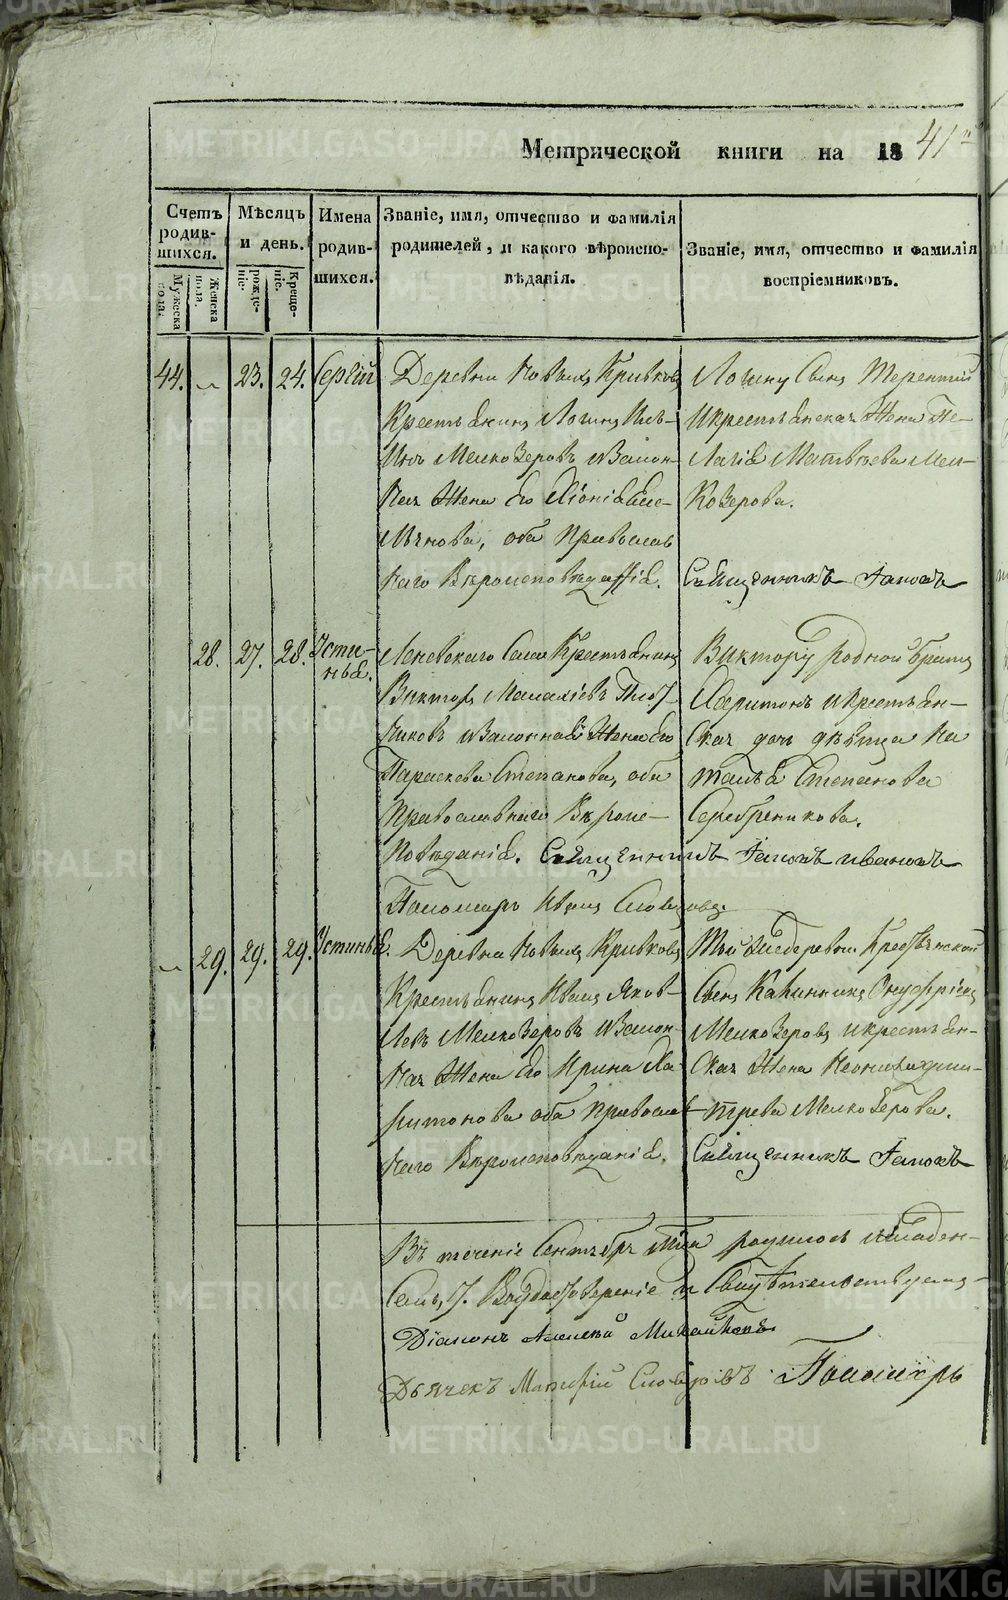 Метрической книги на 1841го
Счетъ родив-шихся.
Мужеска пола.
Женска пола.
Мѣсяцъ и день.
рожде-ніе.
Креще-ніе.
Имена родив-шихся.
Званіе, имя, отчество и фамилія
родителей, и какого вѣроиспо-
вѣданія.
Званіе, имя, отчество и фамилія
воспріемниковъ.
44.
23.
24.
Сергій
Деревни Новыхъ Кривковъ
Крестьянинъ Логинъ Иль-
инъ Мелкозеровъ и Закон-
ная Жена Его Хіонія Еме-
льянова, оба Православ
наго Вѣроисповѣданія.
Логину Сынъ Терентій
и крестьянская Жена Пе-
лагія Матвѣева Мел-
козерова.
Священникъ Іаковъ
28.
27.
28.
Усти-
нья.
Леневскаго Села Крестьянинъ
Викторъ Малахіевъ
и Законная Жена Его
Параскева Степанова, оба
Православнаго Вѣроис-
повѣданія. Священникъ Іаковъ Ивановъ
Пономарь Иванъ Словцовъ
Виктору родной братъ
Харитонъ и крестьян-
ская дочь дѣвица На
талья Степанова
Серебреникова.
29.
29.
29.
Устинья.
Деревни Новыхъ Кривковъ
Крестьянинъ Иванъ Яков-
левъ Мелкозеровъ и Закон-
ная Жена Его Ирина Ха
ритонова оба Православ
наго Вѣроисповѣданія.
Той же деревни Крестьянской
Сынъ Каллиникъ Онуфріевъ
Мелкозеровъ и крестьян-
ская Жена Неонила Дми-
трева Мелкозерова.
Священникъ Іаковъ
Въ теченіе Сентября Мца родилось младен-
Семь, 7. Въ удостовѣреніе и Свидѣтельствуемъ
Діаконъ Алексѣй Михайловъ
Дьячекъ Матфій Словцовъ Пономарь